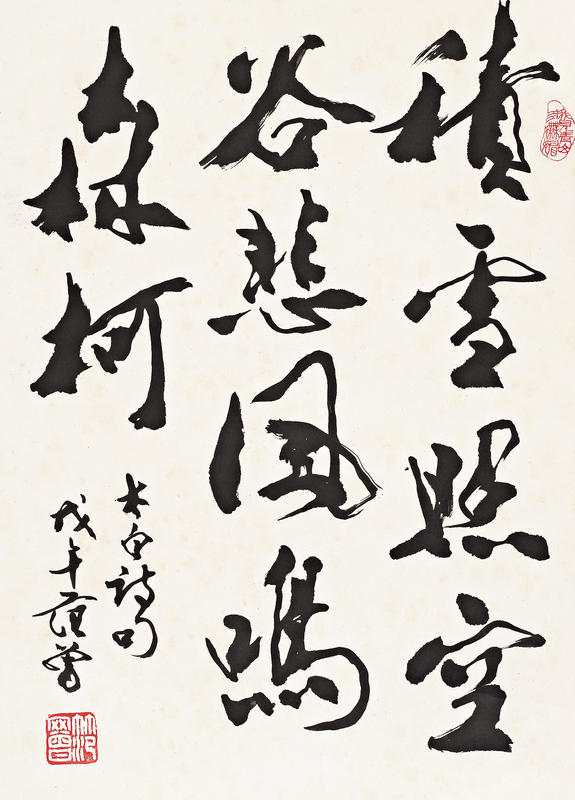 積雪照空
谷悲風鳴
森柯
太白詩句
戊午范曾
范曾